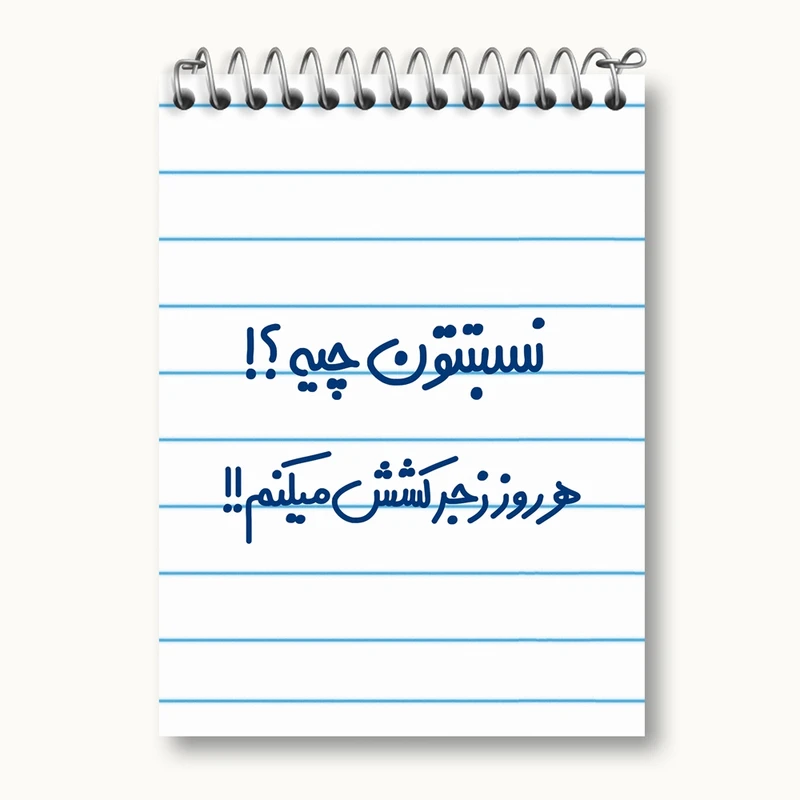 نسبتتون چیه؟!
هر روز زجر کشش میکنم!!